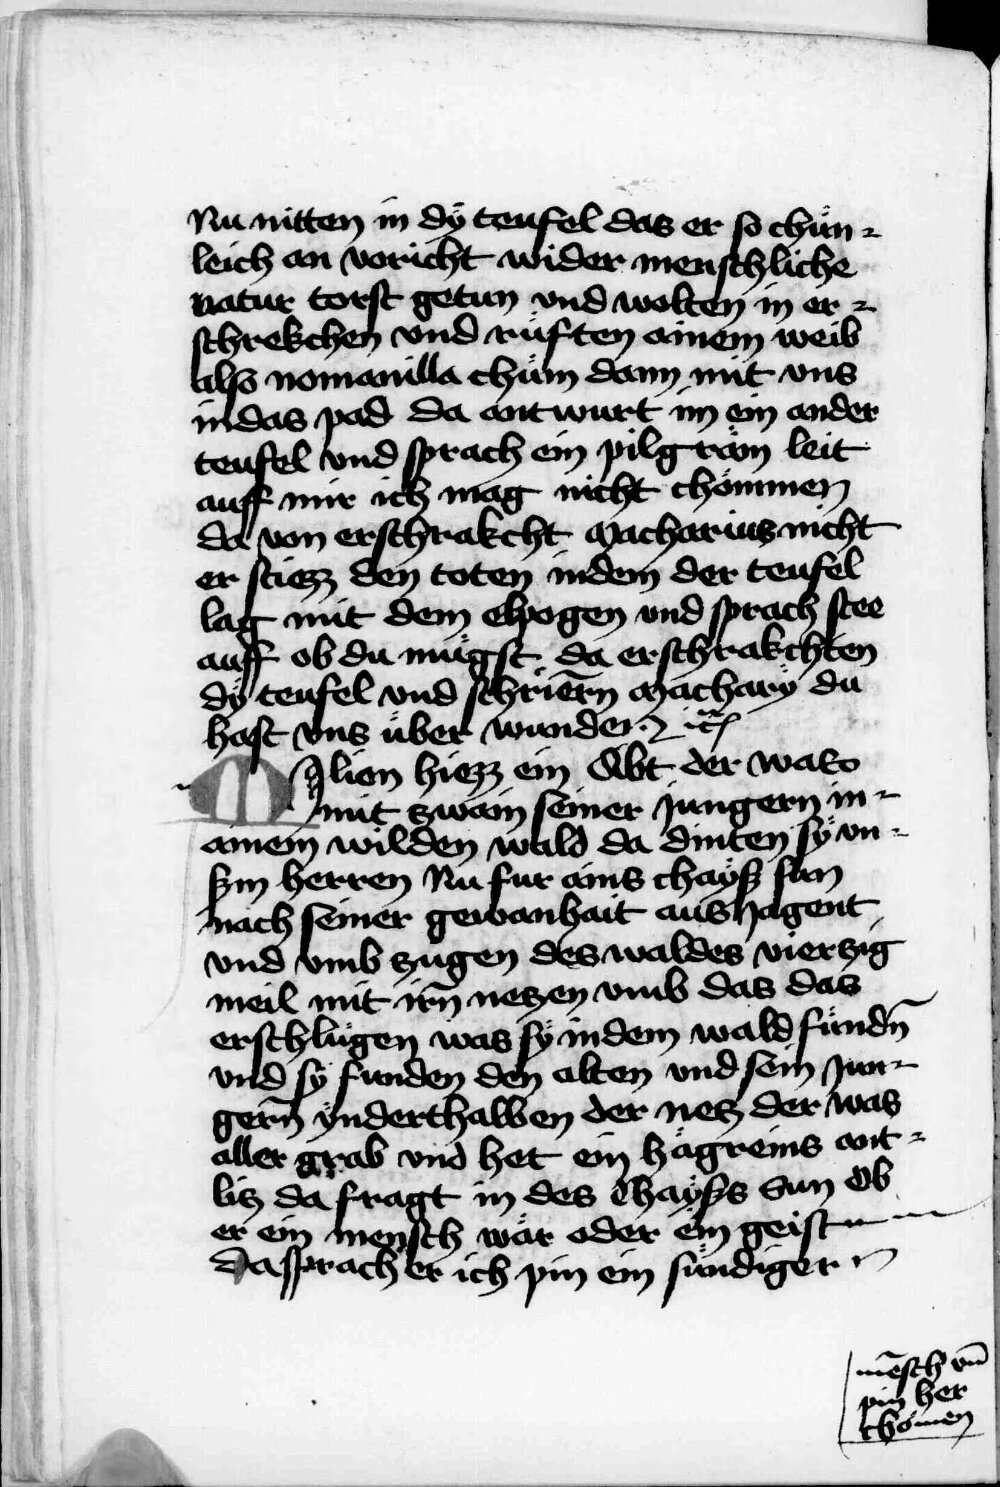 Nu nitten in dÿ teufel das er so chün-
leich an voricht wider menschliche
natur torst getun vnd wolten in er-
schrekchen vnd rüften ainem weib
also nomanilla chüm dann mit vns
in das pad da antwurt im ein ander
teufel vnd sprach ein pilgräm leit
auff mir ich mag nicht chömmen
da von erschrakcht Macharius nicht
er stiezz den toten in dem der teufel
lag mit dem elpogen vnd sprach stee
auff ob du mügst da erschrakchten
dÿ teufel vnd schriern Macharÿ du
hast vns über wunden
lien hiezz ein Abt der was
mit zwain seiner jungern in-
ainem wilden wald da dinten sÿ vn-
serm herren Nu fur ains chaÿs sun
nach seiner gewanhait aus Jagent
vnd vmb zugen des waldes vierzig
meil mit irn netzen vmb das das
erschlügen was sÿ in dem wald fündn
vnd sÿ funden den alten vnd sein Jun-
gern ÿnderthalben der netz der was
aller grab vnd het ein hägreins ant-
litz da fragt in des Chaÿss Sun Ob
er ein mensch wär oder ein geist
Da sprach er ich pin ein sündiger
mēsch vn̄
pin her
chömen